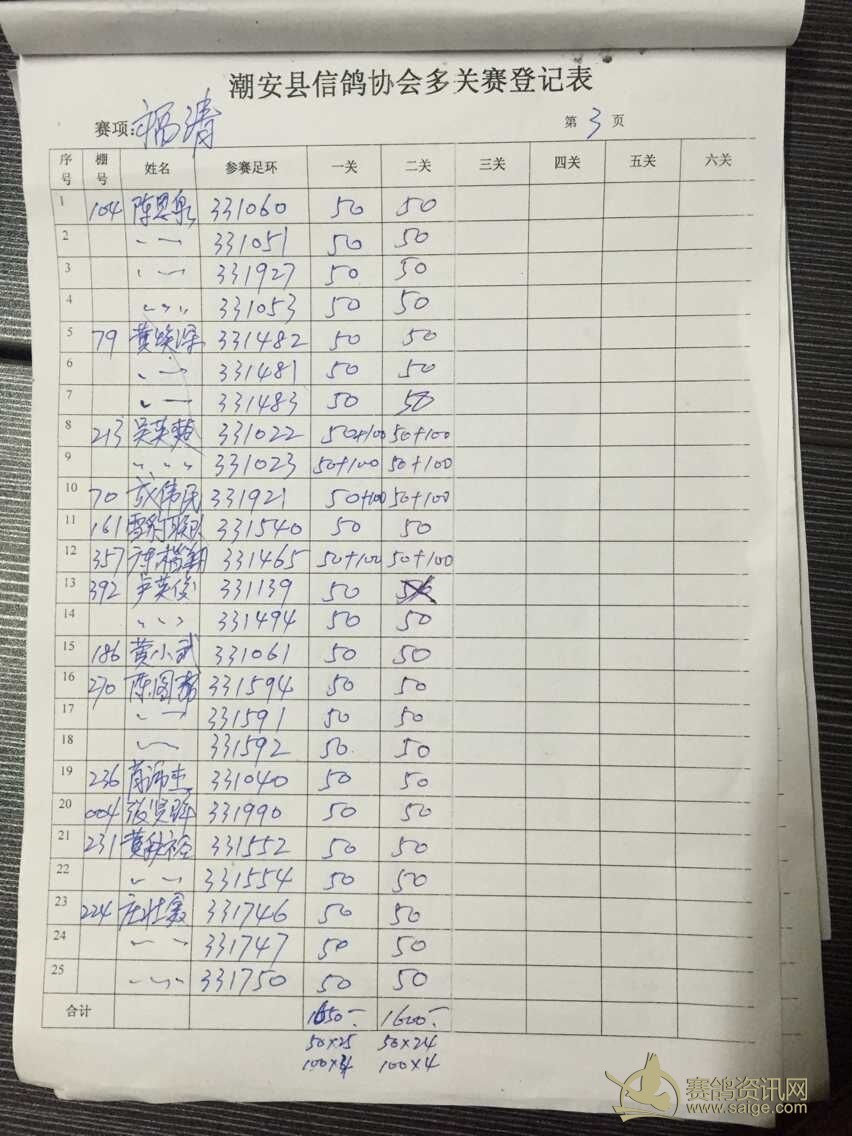 潮安县信鸽协会多关赛登记表
赛项: 福清 第 3 页
序号 棚号 姓名 参赛足环 一关 二关 三关 四关 五关 六关
1 104 陈恩泉 331060 50 50
2 331051 50 50
3 331927 50 50
4 331053 50 50
5 79 331482 50 50
6 331481 50 50
7 331483 50 50
8 213 331022 50+100 50+100
9 331023 50+100 50+100
10 70 伟民 331921 50+100 50+100
11 161 331540 50 50
12 357 331465 50+100 50+100
13 392 英俊 331139 50
14 331494 50 50
15 186 黄小武 331061 50 50
16 270 331594 50 50
17 331591 50 50
18 331592 50 50
19 236 331040 50 50
20 004 331990 50 50
21 231 331552 50 50
22 331554 50 50
23 224 331746 50 50
24 331747 50 50
25 331750 50 50
合计 1650- 1600-
50×25 50×24
100×4 100×4
赛鸽资讯网
www.saige.com